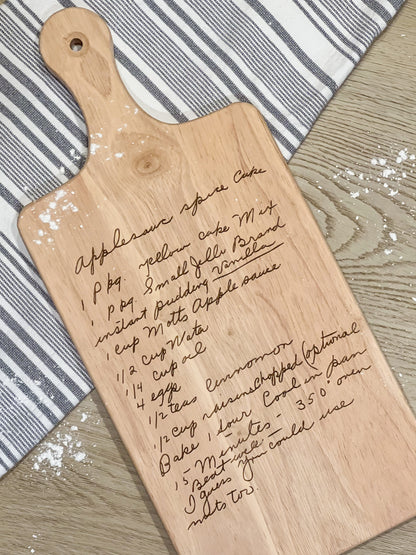 Applesauc spice cake
1 pkg. yellow cake Mix
1 pkg. Small Jello Brand
instant pudding Vanilla
1 cup Motts Apple sauce
1/2 cup Wata
1/4 cup oil
4 eggs
1/2 teas cinnomon
1/2 cup raisins chopped (optional
Bake 1 hour Cool in pan
15 - Minutes - 350° oven
Bedt wce
I guess you could use
nuts too.